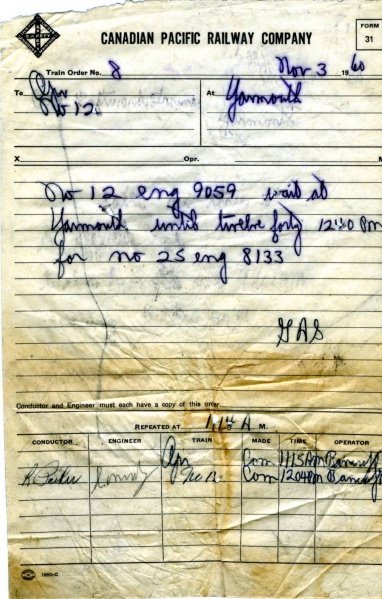 CANADIAN PACIFIC RAILWAY COMPANY
FORM
31
Train Order No. 8 Nov 3 1960
To Opr At Yarmouth
No 12
X Opr. M
No 12 eng 9059 wait at
Yarmouth until twelve forty 1240 Pm
for no 25 eng 8133
GAS
Conductor and Engineer must each have a copy of this order.
REPEATED AT A M.
CONDUCTOR ENGINEER TRAIN MADE TIME OPERATOR
Opr Com 1115 AM
R. Parker Com 1204 PM
1693-C